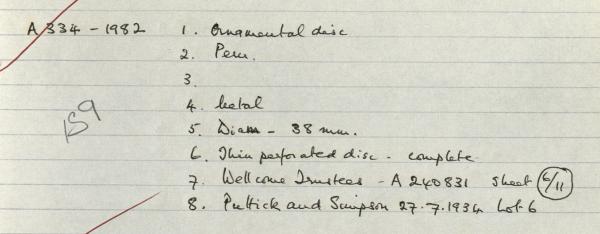 A 334 - 1982 1. Ornamental disc
2. Peru.
3.
4. Metal
5. Diam - 38 mm.
6. Thin perforated disc - complete
7. Wellcome Trustees - A 240831 sheet 6/11
8. Puttick and Simpson 27.7.1934 Lot 6